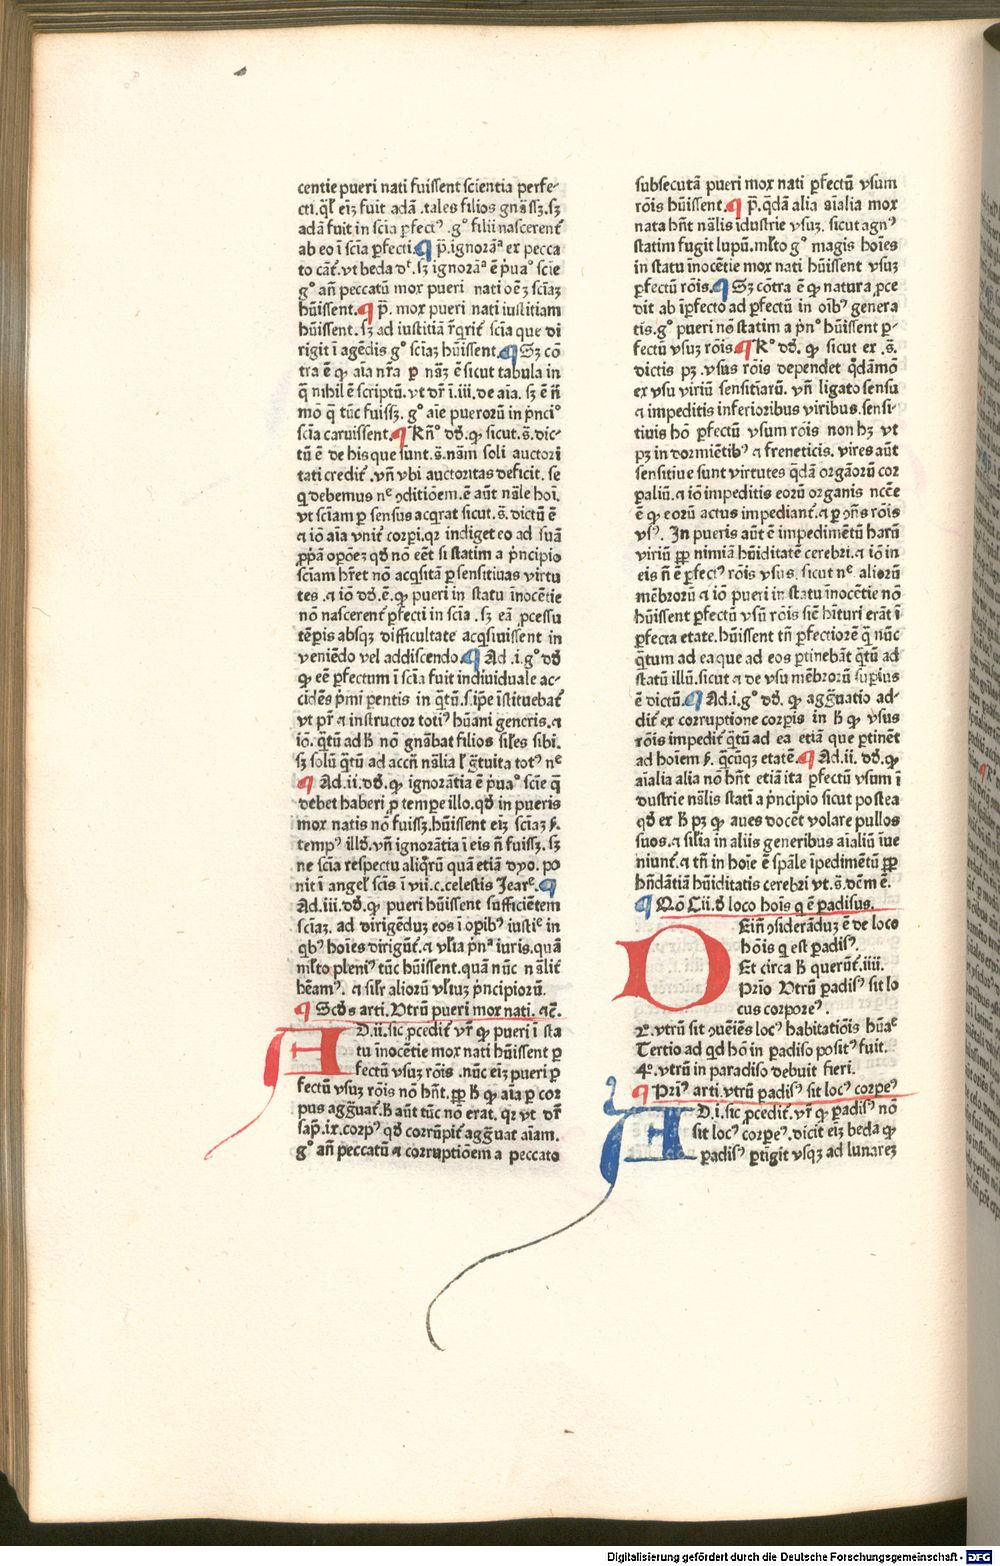 centie pueri nati fuissent scientia perfe-
cti.q̃l eiꝫ fuit adã .tales filios gnãssꝫ.sꝫ
adã fuit in scia ꝑfectꝰ .gͦ filii nascerent᷑
ab eo ĩ scĩa ꝑfecti.¶ p̃.ignorãᵃ ex pecca
to cãt᷑.vt beda dᵗ.sꝫ ignorãᵃ ẽ p̃uaͦ scie
gͦ añ peccatũ mox pueri nati oẽꝫ sciaꝫ
hũissent.¶ p̃. mox pueri nati iustitiam
hũissent.sꝫ ad iustitiã r̃qrit᷑ scĩa que di
rigit ĩ agẽdis gͦ sciaꝫ hũissent.¶ Sꝫ cõ
tra ẽ ꝙ aia nr̃a ꝑ nãꝫ ẽ sicut tabula in
q̃ nihil ẽ scriptũ.vt dr̃ ĩ.iii.de aia. sꝫ ẽ ñ
mõ q̃ tũc fuissꝫ. gͦ aie puerorũ in p̃nciͦ
scĩa caruissent.¶ Rñͦ dõ.ꝙ sicut.s̃.dic-
tũ ẽ de his que sunt.s̃.nãm soli auctori
tati credit᷑ .vñ vbi auctoritas deficit. se
q̃ debemus nᵉ ꝯditiõem.ẽ aũt nãle hoĩ.
vt sciam ꝑ sensus acq̃rat sicut.s̃. dictũ ẽ
⁊ iõ aĩa vnit᷑ corpi.qr indiget eo ad suã
ꝓp̃ã opõeꝫ qđ nõ eẽt si statim a p̃ncipio
sciam hr̃et nõ acq̃sitã ꝑ sensitiuas virtu
tes .⁊ iõ dõ.ẽ.ꝙ pueri in statu ĩnocẽtie
nõ nascerent᷑ ꝑfecti in scĩa .sꝫ eã ꝓcessu
tẽpis absqꝫ difficultate acq̃siuissent in
veniẽdo vel addiscendo.¶ Ad .i.gͦ dõ
ꝙ eẽ ꝑfectum ĩ scĩa fuit indiuiduale ac-
cidẽs p̃mi pentis in q̃tũ.s.ip̃e ĩstituebat᷑
vt pr̃ ⁊ instructor totiꝰ hũani generis.⁊
iõ. q̃tũ ad ħ nõ gnãbat filios siles sibi.
sꝫ solũ q̃tũ ad accñ nãlia ł g̃tuita totꝰ nᵉ
¶ Ad.ii.dõ.ꝙ ignorãtia ẽ p̃uaͦ scĩe q̃
debet haberi ꝓ tempe illo.qđ in pueris
mox natis nõ fuissꝫ.hũissent eiꝫ sciaꝫ ẜ.
tempꝰ illđ.vñ ignorãtia ĩ eis ñ fuissꝫ.sꝫ
ne scĩa respectu aliq̃rũ quã etiã dyo. po
nit ĩ angeł scis ĩ vii.c.celestis Jearᵉ.¶
Ad.iii.dõ.ꝙ pueri hũissent sufficiẽtem
sciaꝫ. ad dirigẽduꝫ eos ĩ opibꝰ iustiᵉ in
qbꝰ hoĩes dirigũt᷑.⁊ vl̃ia p̃nᵃ iuris.quã
ml̃to pleniꝰ tũc hũissent.quã nũc nãlit᷑
hẽamꝰ. ⁊ silr̃ aliorũ vl̃iuꝫ p̃ncipiorũ.
¶ Scđs arti. Utrũ pueri mox nati. ⁊c̃.
AD.ii.sic ꝓcedit᷑ vr̃ ꝙ pueri ĩ sta
tu ĩnocẽtie mox nati hũissent ꝑ
fectũ vsuꝫ rõis .nũc eiꝫ pueri ꝑ
fectũ vsuꝫ rõis nõ hñt.ꝓp̃ ħ ꝙ aĩa ꝑ cor
pus agg̃uat᷑.ħ aũt tũc nõ erat. qr vt dr̃
sap̃.ix.corpꝰ qđ corrũpit᷑ agg̃uat aĩam.
gͦ añ peccatũ ⁊ corruptiõem a peccato
subsecutã pueri mox nati ꝑfectũ vsum
rõis hũissent.¶ p̃.q̃dã alia aĩalia mox
nata hñt nãlis ĩdustrie vsuꝫ. sicut agnꝰ
statim fugit lupũ.ml̃to gͦ magis hoĩes
in statu inocẽtie mox nati hũissent vsuꝫ
ꝑfectũ rõis.¶ Sꝫ cõtra ẽ ꝙ natura ꝓce
dit ab ĩꝑfecto ad ꝑfectũ in oĩbꝰ genera
tis.gͦ pueri nõ statim a p̃nͦ hũissent ꝑ-
fectũ vsuꝫ rõis.¶ Rͦ dõ. ꝙ sicut ex .s̃.
dictis pꝫ .vsus rõis dependet q̃dãmõ
ex vsu viriũ sensitiarũ. vñ ligato sensu
⁊ impeditis inferioribus viribus.sensi-
tiuis hõ ꝑfectũ vsum rõis non hꝫ vt
pꝫ in dormiẽtibꝰ ⁊ freneticis. vires aũt
sensitiue sunt virtutes q̃dã orgãorũ cor
paliũ.⁊ iõ impeditis eorũ organis ncẽe
ẽ ꝙ eorũ actus impediant᷑.⁊ ꝑ ꝯñs rõis
vsꝰ. In pueris aũt ẽ impedimẽtũ harũ
viriũ ꝓp̃ nimiã hũiditatẽ cerebri.⁊ iõ in
eis ñ ẽ ꝑfectꝰ rõis vsus. sicut nᵉ aliorũ
mẽbrorũ ⁊ iõ pueri in statu ĩnocẽtie nõ
hũissent ꝑfectũ vsũ rõis siẽ hĩturi erãt ĩ
ꝑfecta etate.hũissent tñ ꝑfectiorẽ q̃ nũc
q̃tum ad ea que ad eos ꝑtinebãt q̃tũ ad
statũ illũ.sicut ⁊ de vsu mẽbrorũ suꝑius
ẽ dictũ.¶ Ad.i.gͦ dõ. ꝙ agg̃uatio ad-
dit᷑ ex corruptione corpis in ħ ꝙ vsus
rõis impedit᷑ q̃tũ ad ea etiã que ꝑtinẽt
ad hoĩem ẜ. q̃cũqꝫ etatẽ.¶ Ad.ii. dõ.ꝙ
aĩalia alia nõ hñt etiã ita ꝑfectũ vsum ĩ
dustrie nãlis stati a p̃ncipio sicut postea
qđ ex ħ pꝫ ꝙ aues docẽt volare pullos
suos.⁊ silia in aliis generibus aĩaliũ iue
niunt᷑.⁊ tñ in hoĩe ẽ sp̃ale ĩpedimẽtũ ꝓp̃
hñdãtiã hũiditatis cerebri vt.s̃.dc̃m ẽ.
¶ Nõ Cii.đ loco hoĩs q ẽ padisus.
DEiñ ꝯsiderãduꝫ ẽ de loco
hõis q est padisꝰ.
Et circa ħ querũt᷑.iiii.
Prĩo Utrũ padisꝰ sit lo
cus corporeꝰ.
2.vtrũ sit ꝯueĩẽs locꝰ habitatiõis hũaᵉ
Tertio ad qd hõ in padiso positꝰ fuit.
4ͦ.vtrũ in paradiso debuit fieri.
¶ Priꝰ arti.vtrũ padisꝰ sit locꝰ corpeꝰ
AD.i.sic ꝓcedit᷑.vr̃ ꝙ padisꝰ nõ
sit locꝰ corpeꝰ.dicit eiꝫ beda ꝙ
padisꝰ ꝑtigit vsqꝫ ad lunareꝫ
Digitalisierung gefördert durch die Deutsche Forschungsgemeinschaft - DFG